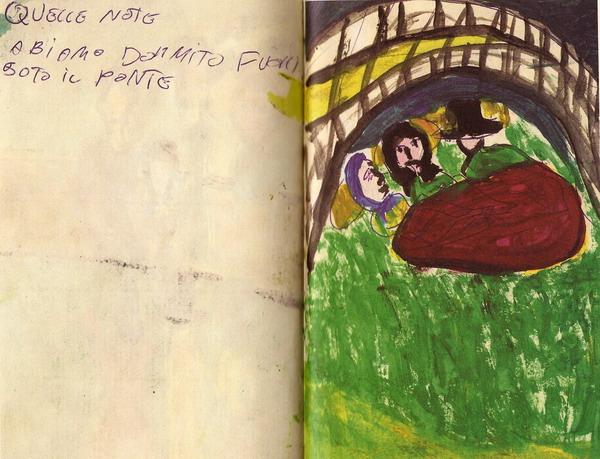 QUELLE NOTE
ABIAMO DORMITO FUORI
SOTO IL PONTE